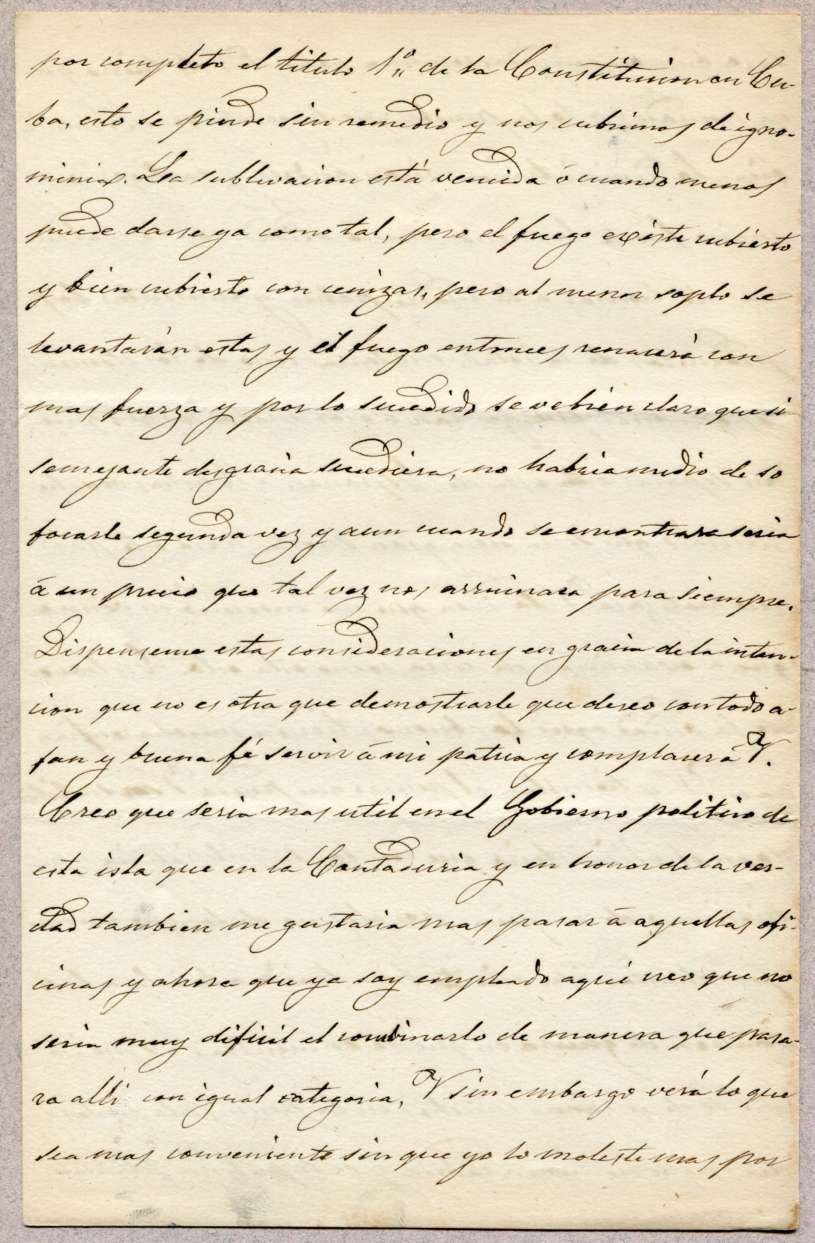 por completo el titulo 1º de la Constitucion en Cu-
ba, esto se pierde sin remedio y nos cubrimos de igno-
minia. La sublevacion está vencida ó cuando menos
puede darse ya como tal, pero el fuego existe cubierto
y bien cubierto con cenizas, pero al menor soplo se
levantarán estas y el fuego entonces renacerá con
mas fuerza y por lo sucedido se ve bien claro que si
semejante desgracia sucediera, no habria medio de so
focarle segunda vez y aun cuando se encontrara seria
á un precio que tal vez nos arruinara para siempre.
Dispenseme estas consideraciones en gracia de la inten-
cion que no es otra que demostrarle que deseo con todo a-
fan y buena fé servir á mi patria y complacer á V.
Creo que seria mas util en el Gobierno politico de
esta isla que en la Contaduria y en honor de la ver-
dad tambien me gustaria mas pasar á aquellas ofi-
cinas y ahora que ya soy empleado aqui creo que no
seria muy dificil el combinarlo de manera que pasa-
ra alli con igual categoria, V sin embargo verá lo que
sea mas conveniente sin que yo lo moleste mas por